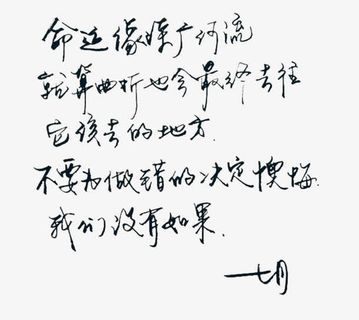 命运像广河流
就算曲折也会最终去往
它该去的地方.
不要为做错的决定懊悔.
我们没有如果.
——七月